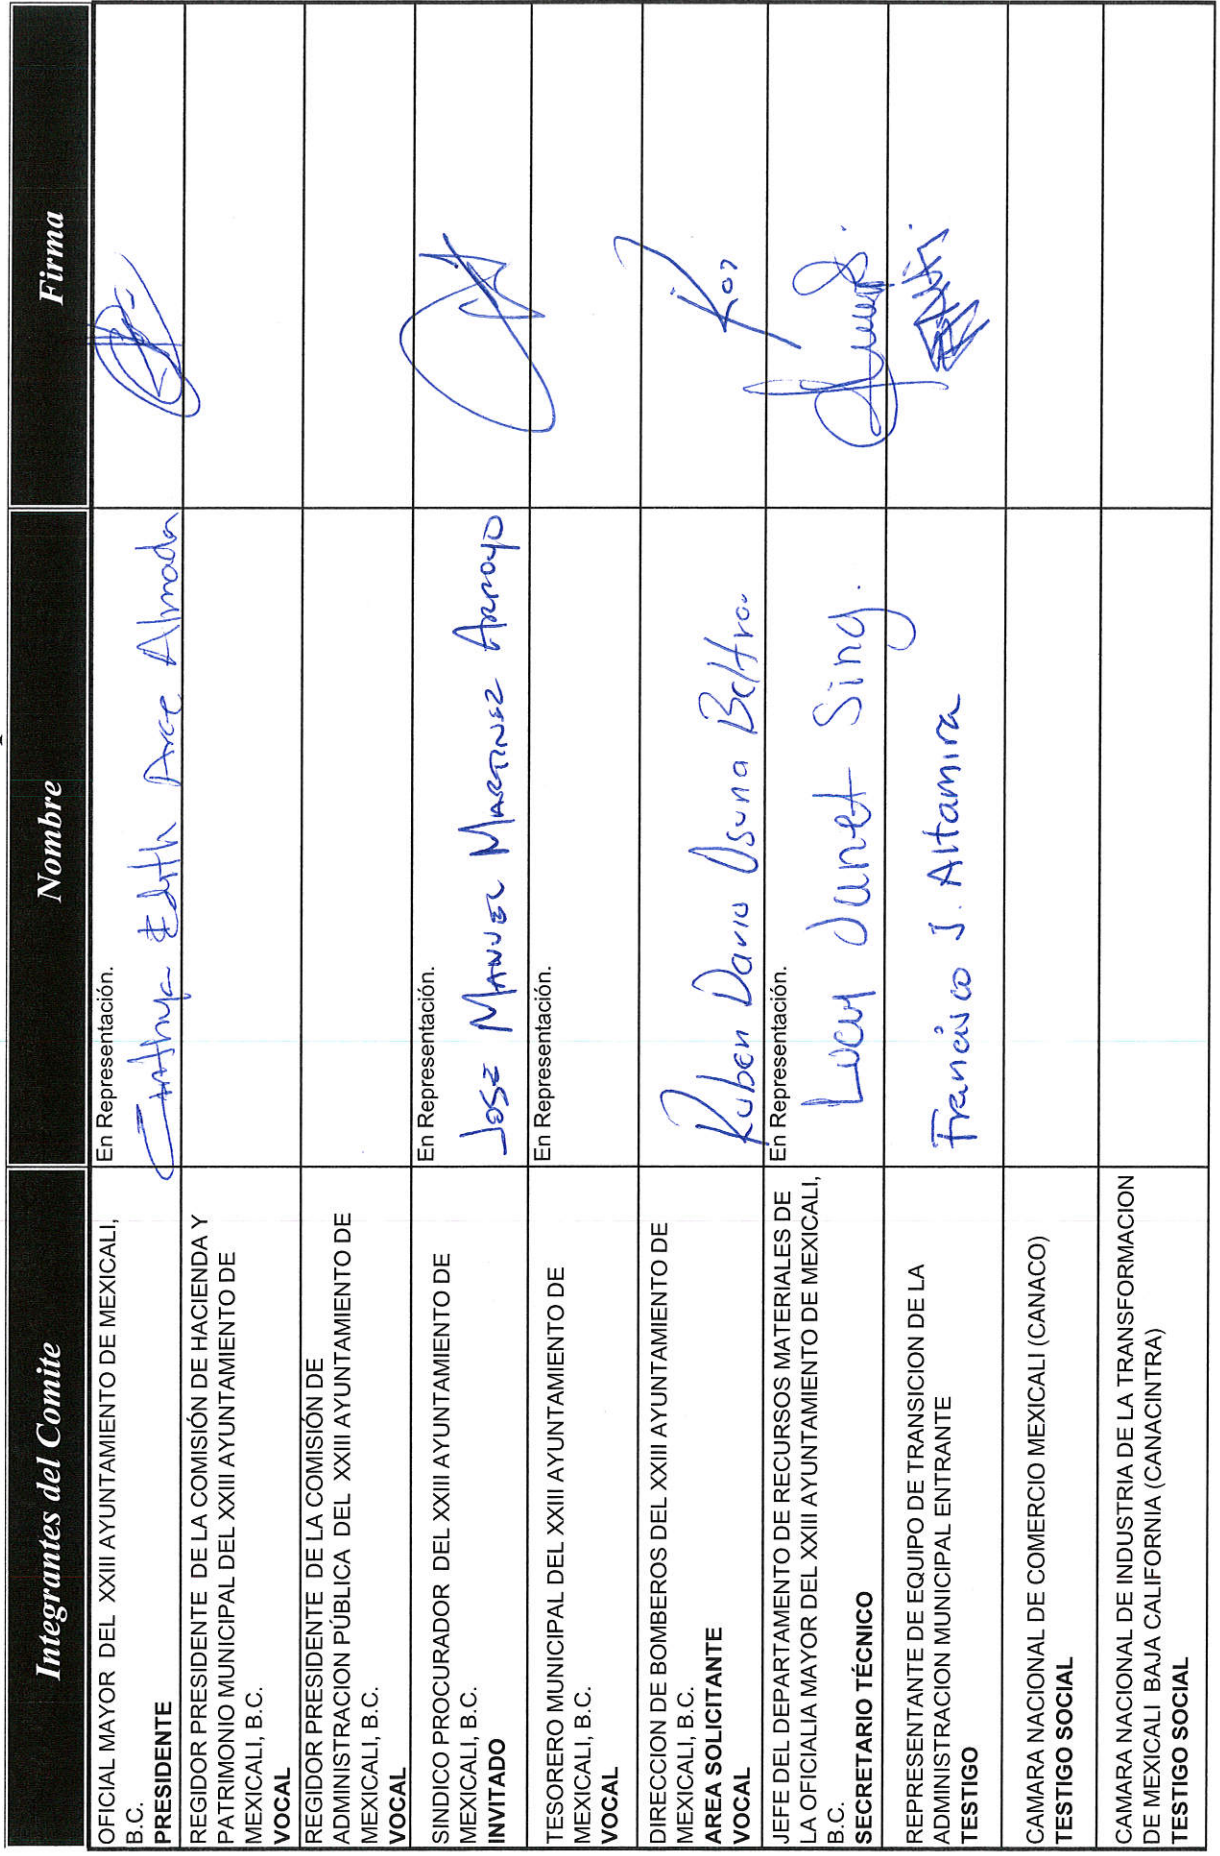 Integrantes del Comite Nombre Firma
OFICIAL MAYOR DEL XXIII AYUNTAMIENTO DE MEXICALI,
B.C.
PRESIDENTE
En Representación.
Edith Arce Almada
REGIDOR PRESIDENTE DE LA COMISIÓN DE HACIENDA Y
PATRIMONIO MUNICIPAL DEL XXIII AYUNTAMIENTO DE
MEXICALI, B.C.
VOCAL
REGIDOR PRESIDENTE DE LA COMISIÓN DE
ADMINISTRACION PÚBLICA DEL XXIII AYUNTAMIENTO DE
MEXICALI, B.C.
VOCAL
SINDICO PROCURADOR DEL XXIII AYUNTAMIENTO DE
MEXICALI, B.C.
INVITADO
En Representación.
JOSE MANUEL MARTINEZ ARROYO
TESORERO MUNICIPAL DEL XXIII AYUNTAMIENTO DE
MEXICALI, B.C.
VOCAL
En Representación.
DIRECCION DE BOMBEROS DEL XXIII AYUNTAMIENTO DE
MEXICALI, B.C.
AREA SOLICITANTE
VOCAL
Ruben Dario Osuna Beltran
JEFE DEL DEPARTAMENTO DE RECURSOS MATERIALES DE
LA OFICIALIA MAYOR DEL XXIII AYUNTAMIENTO DE MEXICALI,
B.C.
SECRETARIO TÉCNICO
En Representación.
Lucy Janet Sing.
REPRESENTANTE DE EQUIPO DE TRANSICION DE LA
ADMINISTRACION MUNICIPAL ENTRANTE
TESTIGO
Francisco J. Altamira
CAMARA NACIONAL DE COMERCIO MEXICALI (CANACO)
TESTIGO SOCIAL
CAMARA NACIONAL DE INDUSTRIA DE LA TRANSFORMACION
DE MEXICALI BAJA CALIFORNIA (CANACINTRA)
TESTIGO SOCIAL